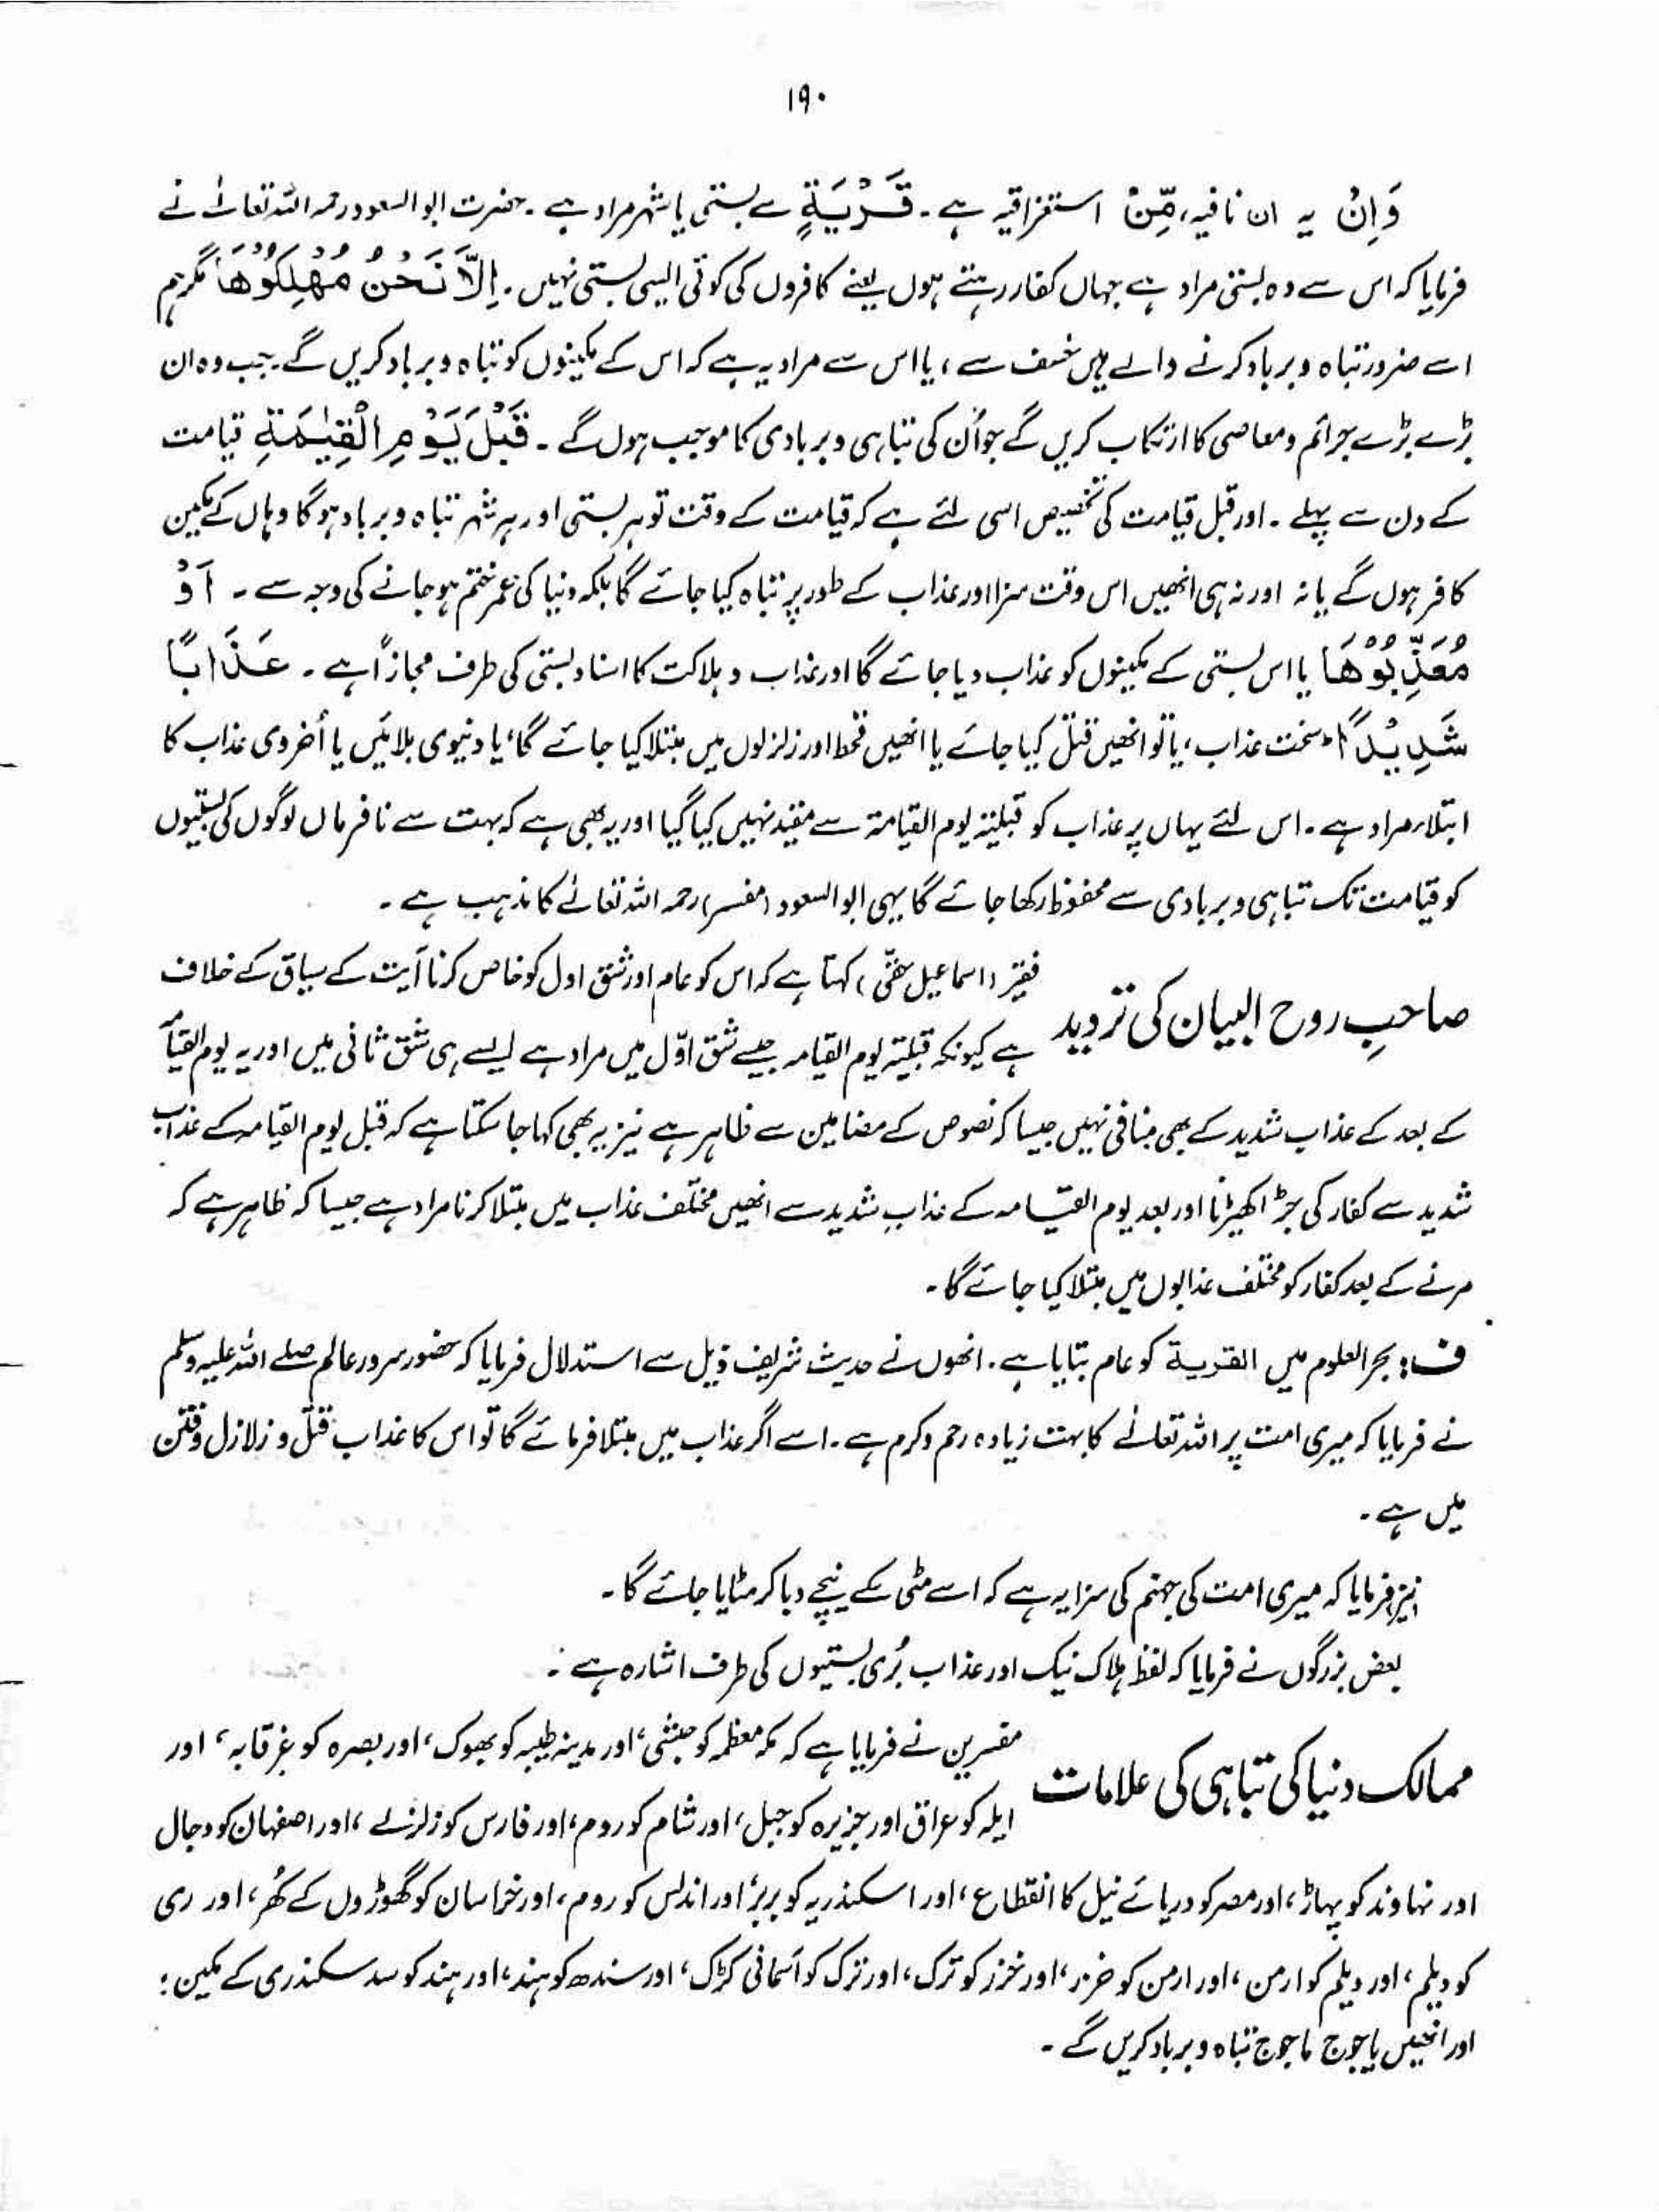 ۱۹۰
وَاِنْ یہ ان نافیہ، مِّنْ استغراقیہ ہے۔ قَرْیَۃٍ سے بستی یا شہر مراد ہے۔ حضرت ابو السعود رحمہ اللہ تعالےٰ نے
فرمایا کہ اس سے وہ بستی مراد ہے جہاں کفار رہتے ہوں یعنے کافروں کی کوئی ایسی بستی نہیں۔ اِلَّا نَحْنُ مُہْلِکُوْھَا مگر ہم
اسے ضرور تباہ و برباد کرنے والے ہیں خسف سے، یا اس سے مراد یہ ہے کہ اس کے مکینوں کو تباہ و برباد کریں گے۔ جب وہ ان
بڑے بڑے جرائم و معاصی کا ارتکاب کریں گے جو اُن کی تباہی و بربادی کا موجب ہوں گے۔ قَبْلَ یَوْمِ الْقِیٰمَۃِ قیامت
کے دن سے پہلے۔ اور قبل قیامت کی تخصیص اسی لئے ہے کہ قیامت کے وقت تو ہر بستی اور ہر شہر تباہ و برباد ہوگا وہاں کے مکین
کافر ہوں گے یا نہ اور نہ ہی انھیں اس وقت سزا اور عذاب کے طور پر تباہ کیا جائے گا بلکہ دنیا کی عمر ختم ہو جانے کی وجہ سے۔ اَوْ
مُعَذِّبُوْھَا یا اس بستی کے مکینوں کو عذاب دیا جائے گا اور عذاب و ہلاکت کا اسناد بستی کی طرف مجازاً ہے۔ عَذَابًا
شَدِیْدًا ط سخت عذاب، یا تو انھیں قتل کیا جائے یا انھیں قحط اور زلزلوں میں مبتلا کیا جائے گا، یا دنیوی بلائیں یا اُخروی عذاب کا
ابتلاء مراد ہے۔ اس لئے یہاں پر عذاب کو قبلیتہ یوم القیامۃ سے مقید نہیں کیا گیا اور یہ بھی ہے کہ بہت سے نافرماں لوگوں کی بستیوں
کو قیامت تک تباہی و بربادی سے محفوظ رکھا جائے گا یہی ابو السعود (مفسر) رحمہ اللہ تعالےٰ کا مذہب ہے۔
صاحبِ روح البیان کی تردید فقیر (اسماعیل حقی) کہتا ہے کہ اس کو عام اور شق اول کو خاص کرنا آیت کے سیاق کے خلاف
ہے کیونکہ قبلیتہ یوم القیامہ جیسے شق اوّل میں مراد ہے ایسے ہی شق ثانی میں اور یہ یوم القیامہ
کے بعد کے عذاب شدید کے بھی منافی نہیں جیسا کہ نصوص کے مضامین سے ظاہر ہے نیز یہ بھی کہا جا سکتا ہے کہ قبل یوم القیامہ کے عذاب
شدید سے کفار کی جڑ اکھیڑنا اور بعد یوم القیامہ کے عذابِ شدید سے انھیں مختلف عذاب میں مبتلا کرنا مراد ہے جیسا کہ ظاہر ہے کہ
مرنے کے بعد کفار کو مختلف عذابوں میں مبتلا کیا جائے گا۔
ف: بحر العلوم میں القریۃ کو عام بتایا ہے۔ انھوں نے حدیث شریف ذیل سے استدلال فرمایا کہ حضور سرور عالم صلے اللہ علیہ وسلم
نے فرمایا کہ میری امت پر اللہ تعالےٰ کا بہت زیادہ رحم و کرم ہے۔ اسے اگر عذاب میں مبتلا فرمائے گا تو اس کا عذاب قتل و زلازل و فتن
میں ہے۔
نیز فرمایا کہ میری امت کی جہنم کی سزا یہ ہے کہ اسے مٹی کے نیچے دبا کر مٹایا جائے گا۔
بعض بزرگوں نے فرمایا کہ لفظ ہلاک نیک اور عذاب بُری بستیوں کی طرف اشارہ ہے۔
ممالک دنیا کی تباہی کی علامات مفسرین نے فرمایا ہے کہ مکہ معظمہ کو حبشی، اور مدینہ طیبہ کو بھوک، اور بصرہ کو غرقابہ، اور
ایلہ کو عراق اور جزیرہ کو جبل، اور شام کو روم، اور فارس کو زلزلے، اور اصفہان کو دجال
اور نہاوند کو پہاڑ، اور مصر کو دریائے نیل کا انقطاع، اور اسکندریہ کو بربر، اور اندلس کو روم، اور خراسان کو گھوڑوں کے کُھر، اور ری
کو دیلم، اور دیلم کو ارمن، اور ارمن کو خزر، اور خزر کو ترک، اور ترک کو آسمانی کڑک، اور سندھ کو ہند، اور ہند کو سد سکندری کے مکین؛
اور انھیں یاجوج ماجوج تباہ و برباد کریں گے۔